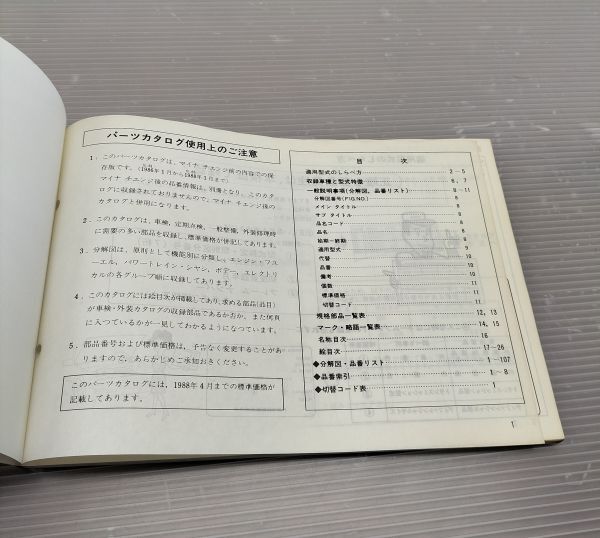 パーツカタログ使用上のご注意
1. このパーツカタログは、マイナ チェンジ後の内容での保
存版です。(1986年1月から1988年1月まで。)
マイナ チェンジ後の品番情報は、別冊となり、このカタ
ログに収録されておりませんので、マイナ チェンジ後の
カタログと併用になります。
2. このカタログは、車検、定期点検、一般整備、外装修理時
に需要の多い部品を収録し、標準価格が併記してあります。
3. 分解図は、原則として機能別に分類し、エンジン・フュ
ーエル、パワートレイン・シャシ、ボデー、エレクトリ
カルの各グループ順に収録してあります。
4. このカタログには絵目次が掲載してあり、求める部品(品目)
が車検・外装カタログの収録部品であるかおか、また何頁
に入つているかが一見してわかるようになつています。
5. 部品番号および標準価格は、予告なく変更することがあ
りますので、あらかじめご承知おきください。
このパーツカタログには、1988年4月までの標準価格が
記載してあります。
目 次
適用型式のしらべ方 2~5
収録車種と型式特徴 6, 7
一般説明事項(分解図、品番リスト) 8~11
分解図番号(FIG.NO.) 8
メイン タイトル 8
サブ タイトル 8
品名コード 8
品名 8
始期―終期 8
適用型式 9
代替 10
品番 10
備考 10
個数 11
標準価格 11
切替コード 11
規格部品一覧表 12, 13
マーク・略語一覧表 14, 15
名称目次 16
絵目次 17~26
◆分解図・品番リスト 1~107
◆品番索引 1~8
◆切替コード表 1
1